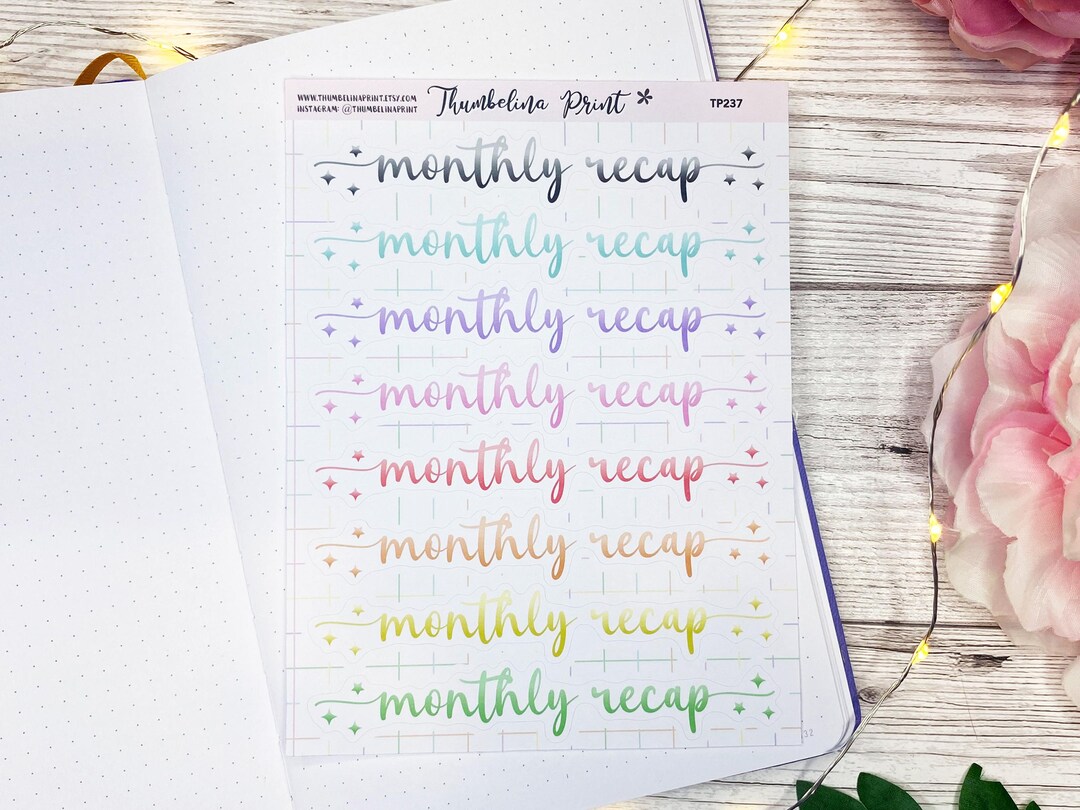 WWW.THUMBELINAPRINT.ETSY.COM
INSTAGRAM: @THUMBELINAPRINT
Thumbelina Print *
TP237
monthly recap
monthly recap
monthly recap
monthly recap
monthly recap
monthly recap
monthly recap
monthly recap
32